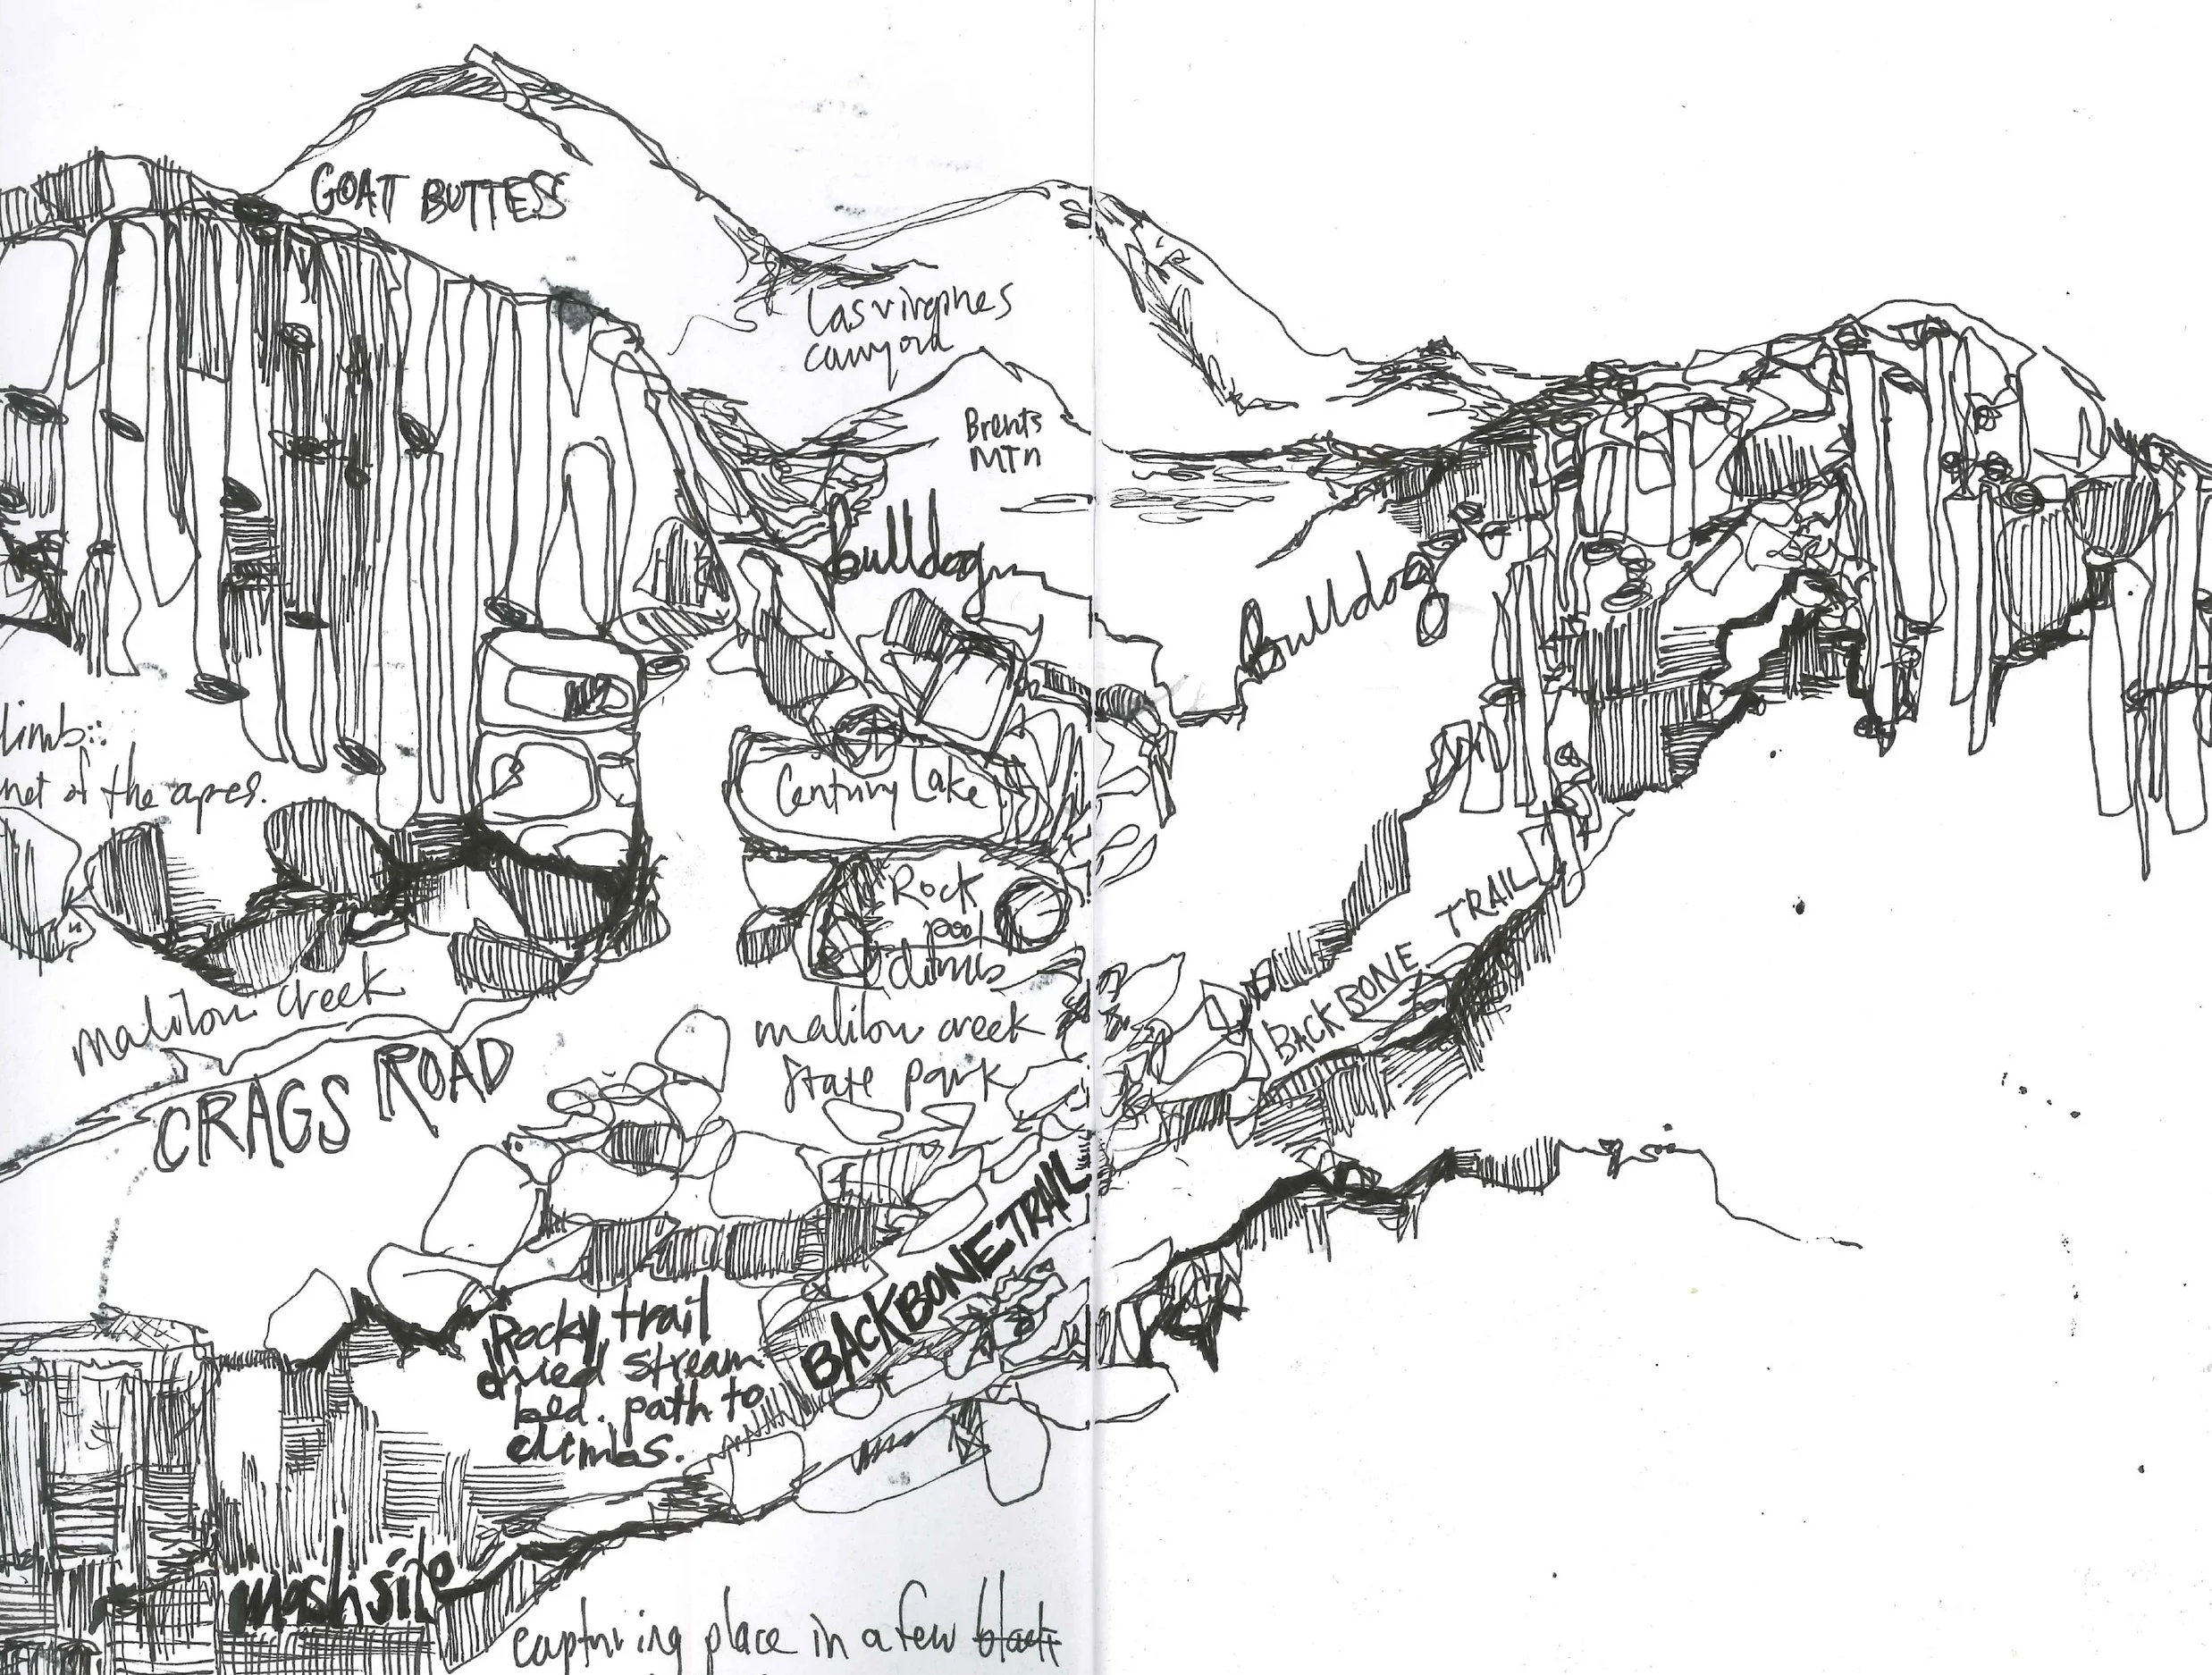 GOAT BUTTESS
Las virgines
canyon
Brents
MTn
Bulldog
Bulldog
limb::
net of the apes.
Century Lake
Rock
pool
climb
BACKBONE TRAIL
malibou creek
malibou creek
State park
CRAGS ROAD
BACKBONE TRAIL
Rocky trail
dried stream
bed. path to
climbs.
mash site
capturing place in a few black